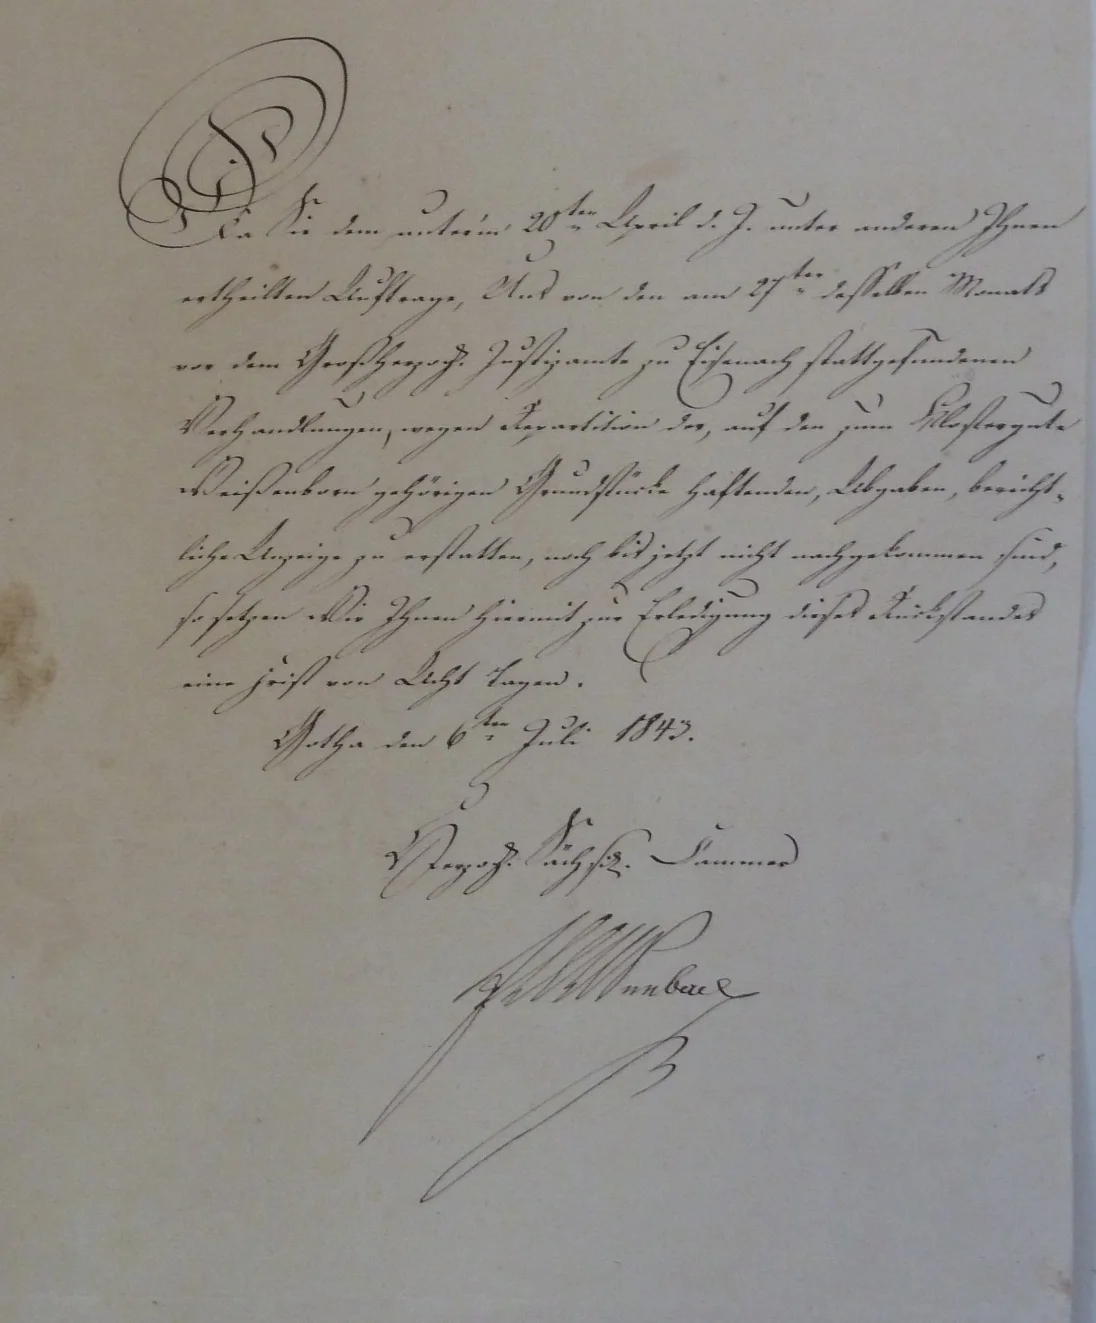 Da Sie dem unterm 20ten April d. J. unter anderen Ihnen
ertheilten Auftrage, Uns von den am 27ten desselben Monats
vor dem Großherzogl. Justizamte zu Eisenach stattgefundenen
Verhandlungen, wegen Repartition der, auf den zum Klostergute
Weißenborn gehörigen Grundstücke haftenden, Abgaben, bericht-
liche Anzeige zu erstatten, noch bis jetzt nicht nachgekommen sind,
so setzen Wir Ihnen hiermit zur Erledigung dieses Rückstandes
eine Frist von Acht Tagen.
Gotha den 6ten Juli 1843.
Herzogl. Sächs. Cammer